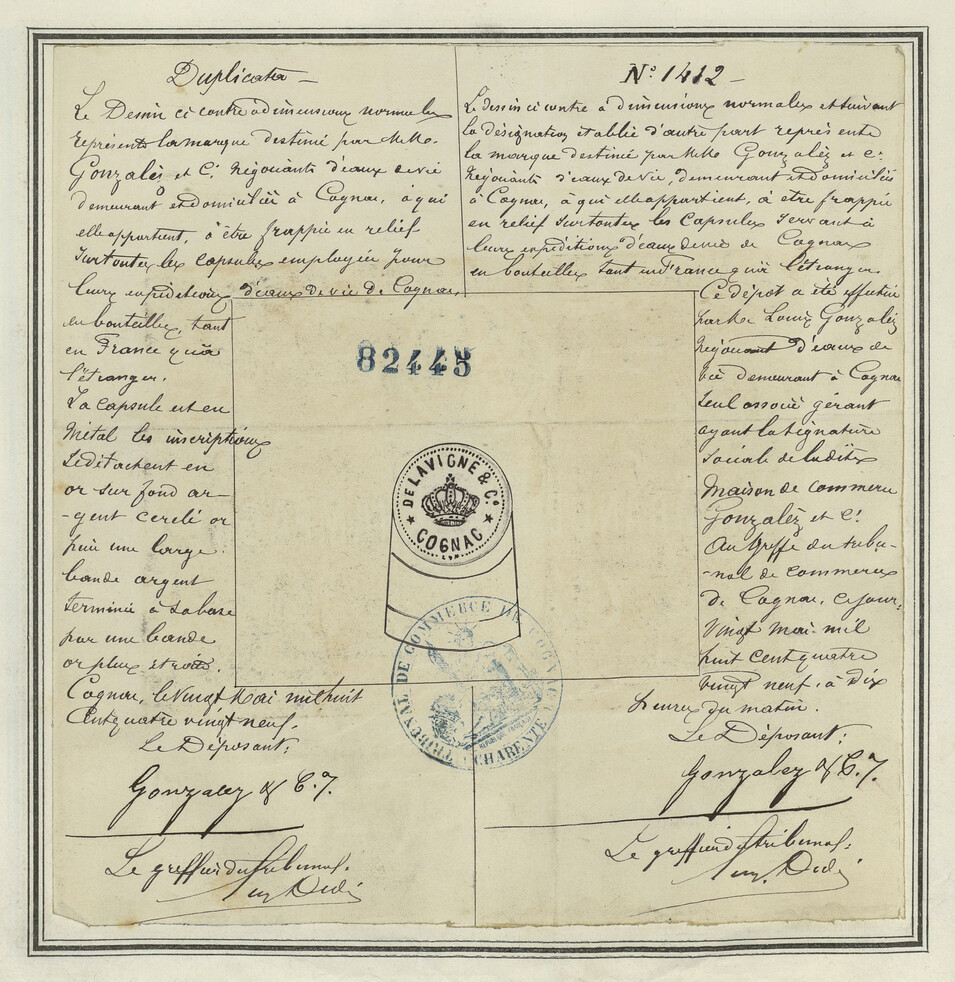 Duplicata
Le Dessin ci contre à dimensions normales
représente la marque destinée par MrMrs
Gonzalès et Cie Négociants d'eaux de vie
demeurant et domiciliés à Cognac, à qui
elle appartient, à être frappée en relief
surtoutes les capsules employées pour
leurs expéditions d'eaux de vie de Cognac,
en bouteilles, tant
en France qu'à
l'étranger.
La capsule est en
métal les inscriptions
se détachent en
or sur fond ar-
-gent cerclé or
puis une large
bande argent
terminée à sa base
par une bande
or plus étroite.
Cognac, le vingt Mai mil huit
cent quatre vingt neuf.
Le Déposant:
Gonzalez & C.ie
Le greffier du tribunal:
Dedé
N° 1412
Le dessin ci contre à dimensions normales et suivant
la désignation établie d'autre part représente
la marque destinée par MrMrs Gonzalèz et Cie
Négociants d'eaux de vie, demeurant et domiciliés
à Cognac, à qui elle appartient, à être frappée
en relief surtoutes les capsules servant à
leurs expéditions d'eaux de vie de Cognac
en bouteilles tant en France qu'à l'étranger
Ce dépôt a été effectué
par Mr Louis Gonzalèz
Négociant d'eaux de
vie demeurant à Cognac
seul associé gérant
ayant la signature
sociale de ladite
maison de commerce
Gonzalèz et Cie
Au Greffe du tribu-
-nal de commerce
de Cognac, ce jour,
Vingt mai mil
huit cent quatre
vingt neuf, à dix
heures du matin.
Le Déposant:
Gonzalez & C.ie
Le greffier du tribunal:
Dedé
82445
DE LAVIGNE & Co
COGNAC
TRIBUNAL DE COMMERCE DE COGNAC
CHARENTE